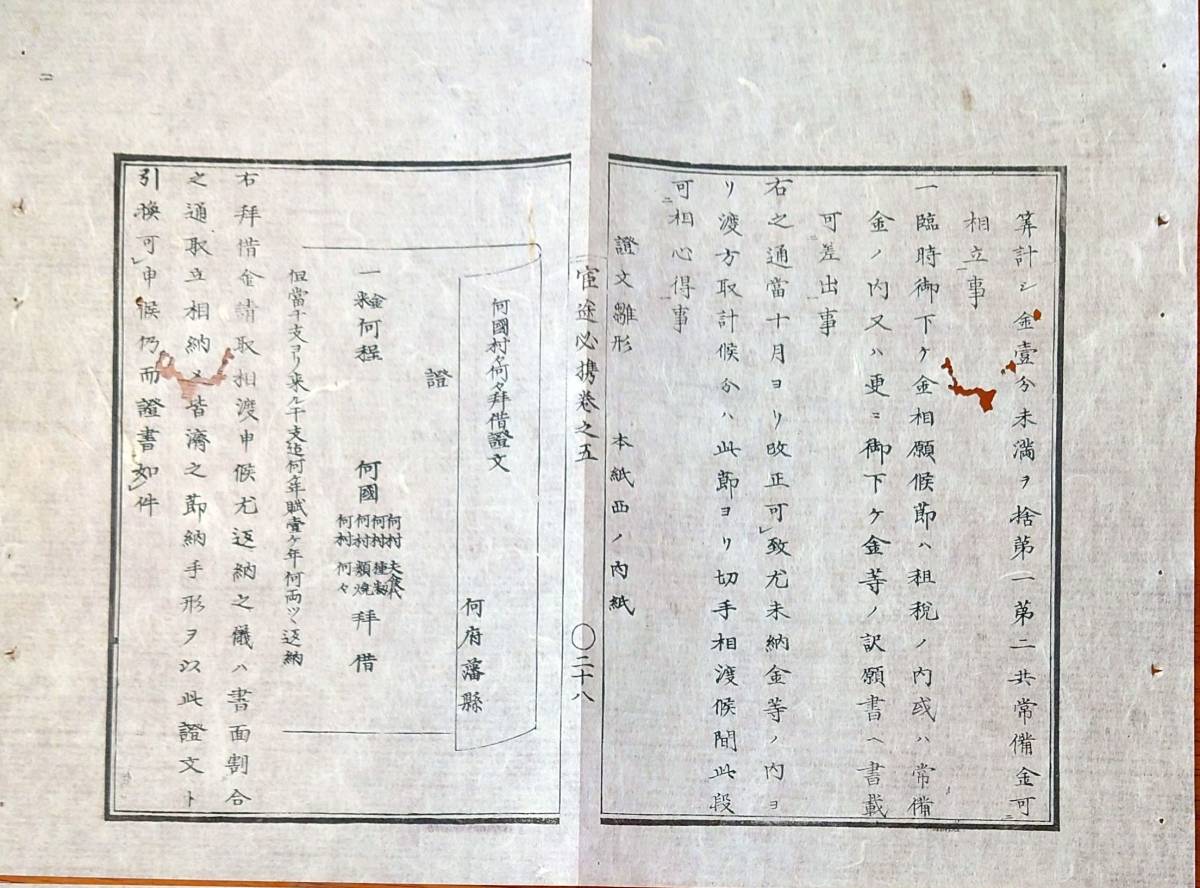 算計シ金壹分未満ヲ捨第一第二共常備金可
相立事
一臨時御下ケ金相願候節ハ租税ノ内或ハ常備
金ノ内又ハ更ニ御下ケ金等ノ訳願書ヘ書載
可差出事
右之通當十月ヨリ改正可致尤未納金等ノ内ヨ
リ渡方取計候分ハ此節ヨリ切手相渡候間此段
可相心得事
證文雛形　本紙西ノ内紙
宦途必携巻之五　〇二十八
何國村々何々拜借證文
何府藩縣
證
一金米何程　何國
何村　夫食代
何村　種穀
何村　類燒
何村　何々
拜借
但當干支ヨリ来ル干支迠何ケ年賦壹ケ年何両ツヽ返納
右拜借金請取相渡申候尤返納之儀ハ書面割合
之通取立相納メ皆濟之節納手形ヲ以此證文ト
引換可申候仍而證書如件